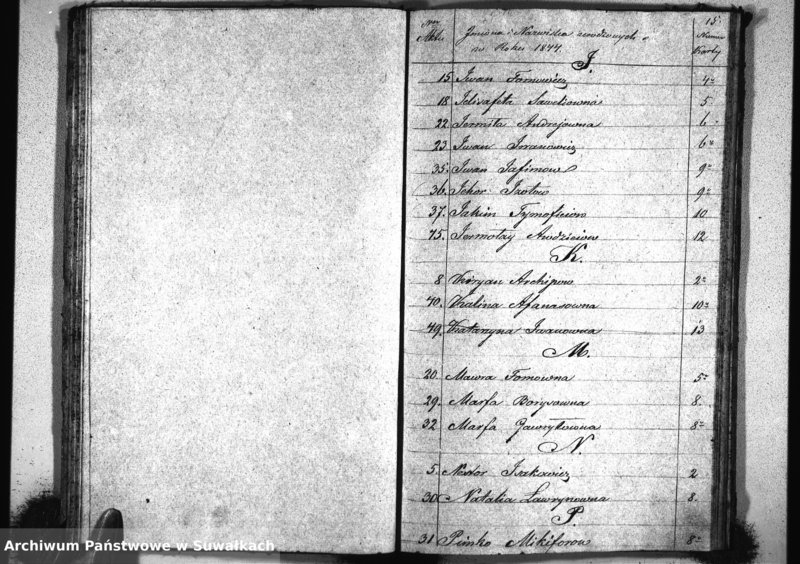 15.
Imiona i Nazwiska urodzonych
w Roku 1844.
Karty
I.
15 Iwan Fomowicz 4
18 Jelisafeta Saweliowna 5
22 Andrejowna 6
23 Iwan Iwanowicz 6
35. Iwan Jafimow 9
36. Izotow 9
37. Jakim Tymofieiow 10
75. Jermołay 12
K.
8 Archipow 2
40. Kalina Afanasowna 10
49. Katarzyna Iwanowna 13
M.
20 Mawra Fomowna 5
29. Marfa Borysowna 8.
32 Marfa Gawryłowna 8
N.
5. Nestor Isakowicz 2
30 Natalia Ławrynowna 8.
P.
31 Pimko Mikiforow 8
Archiwum Państwowe w Suwałkach